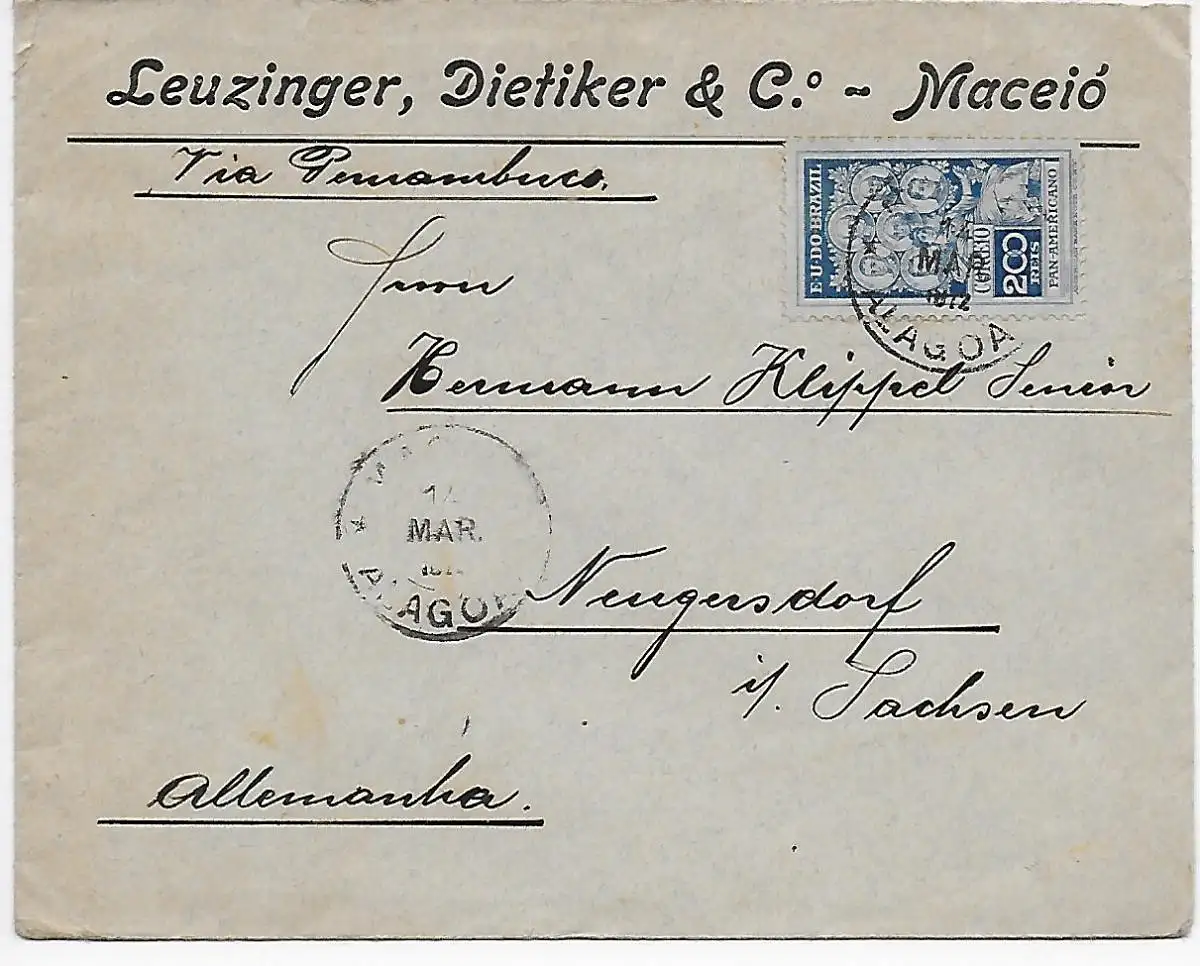 Leuzinger, Dietiker & C.º - Maceió
Via Pernambuco.
E·U·DO·BRAZIL
CORREIO
200
REIS
PAN-AMERICANO
14
MAR.
ALAGOA
Herrn
Hermann Klippel Senior
14
MAR.
ALAGOA
Neugersdorf
i/. Sachsen
Allemanha.